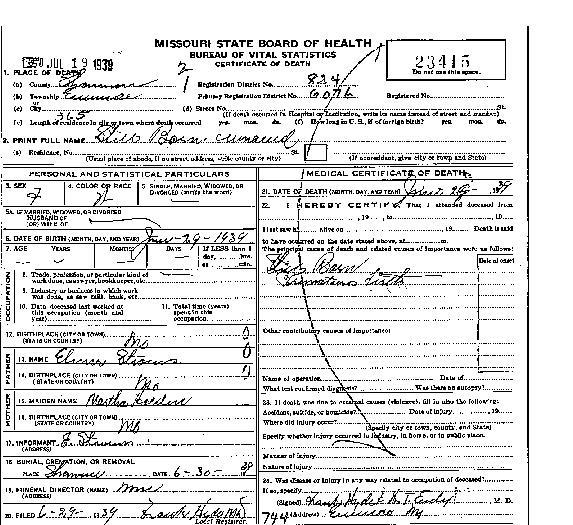 MISSOURI STATE BOARD OF HEALTH
BUREAU OF VITAL STATISTICS
CERTIFICATE OF DEATH
JUL 19 1939
23415
Do not use this space.
1. PLACE OF DEATH
(a) County Registration District No. 824
(b) Township Primary Registration District No. 6076 Registered No.
or
(c) City (d) Street No. St.
(If death occurred in Hospital or Institution, write its name instead of street and number)
(e) Length of residence in city or town where death occurred yrs. mos. ds. (f) How long in U. S., if of foreign birth? yrs. mos. ds.
2. PRINT FULL NAME Still Born unnamed
(a) Residence, No. St.
(Usual place of abode, if no street address, write county or city) (If nonresident, give city or town and State)
PERSONAL AND STATISTICAL PARTICULARS
3. SEX 4. COLOR OR RACE 5. SINGLE, MARRIED, WIDOWED, OR DIVORCED (write the word)
5A. IF MARRIED, WIDOWED, OR DIVORCED
HUSBAND OF
(OR) WIFE OF
6. DATE OF BIRTH (MONTH, DAY, AND YEAR) June 29 - 1939
7. AGE YEARS MONTHS DAYS If LESS than 1 day, hrs. or min.
OCCUPATION
8. Trade, profession, or particular kind of work done, sawyer, bookkeeper, etc.
9. Industry or business in which work was done, as saw mill, bank, etc.
10. Date deceased last worked at this occupation (month and year)
11. Total time (years) spent in this occupation
12. BIRTHPLACE (CITY OR TOWN)
(STATE OR COUNTRY) Mo
FATHER
13. NAME
14. BIRTHPLACE (CITY OR TOWN)
(STATE OR COUNTRY) Mo
MOTHER
15. MAIDEN NAME Martha
16. BIRTHPLACE (CITY OR TOWN)
(STATE OR COUNTRY) Mo
17. INFORMANT
(ADDRESS)
18. BURIAL, CREMATION, OR REMOVAL
PLACE DATE 6-30- 39
19. FUNERAL DIRECTOR (NAME) none
(ADDRESS)
20. FILED 6-29- 1939
Local Registrar.
MEDICAL CERTIFICATE OF DEATH
21. DATE OF DEATH (MONTH, DAY, AND YEAR) June 29- 1939
22. I HEREBY CERTIFY, That I attended deceased from
, 19 , to , 19
I last saw h alive on , 19 Death is said
to have occurred on the date stated above, at m.
The principal cause of death and related causes of importance were as follows:
Date of onset
Still Born
Other contributory causes of importance:
Name of operation Date of
What test confirmed diagnosis? Was there an autopsy?
23. If death was due to external causes (violence), fill in also the following:
Accident, suicide, or homicide? Date of injury , 19
Where did injury occur?
(Specify city or town, county, and State)
Specify whether injury occurred in industry, in home, or in public place.
Manner of injury
Nature of injury
24. Was disease or injury in any way related to occupation of deceased?
If so, specify
(Signed) M. D.
744 (Address) Mo